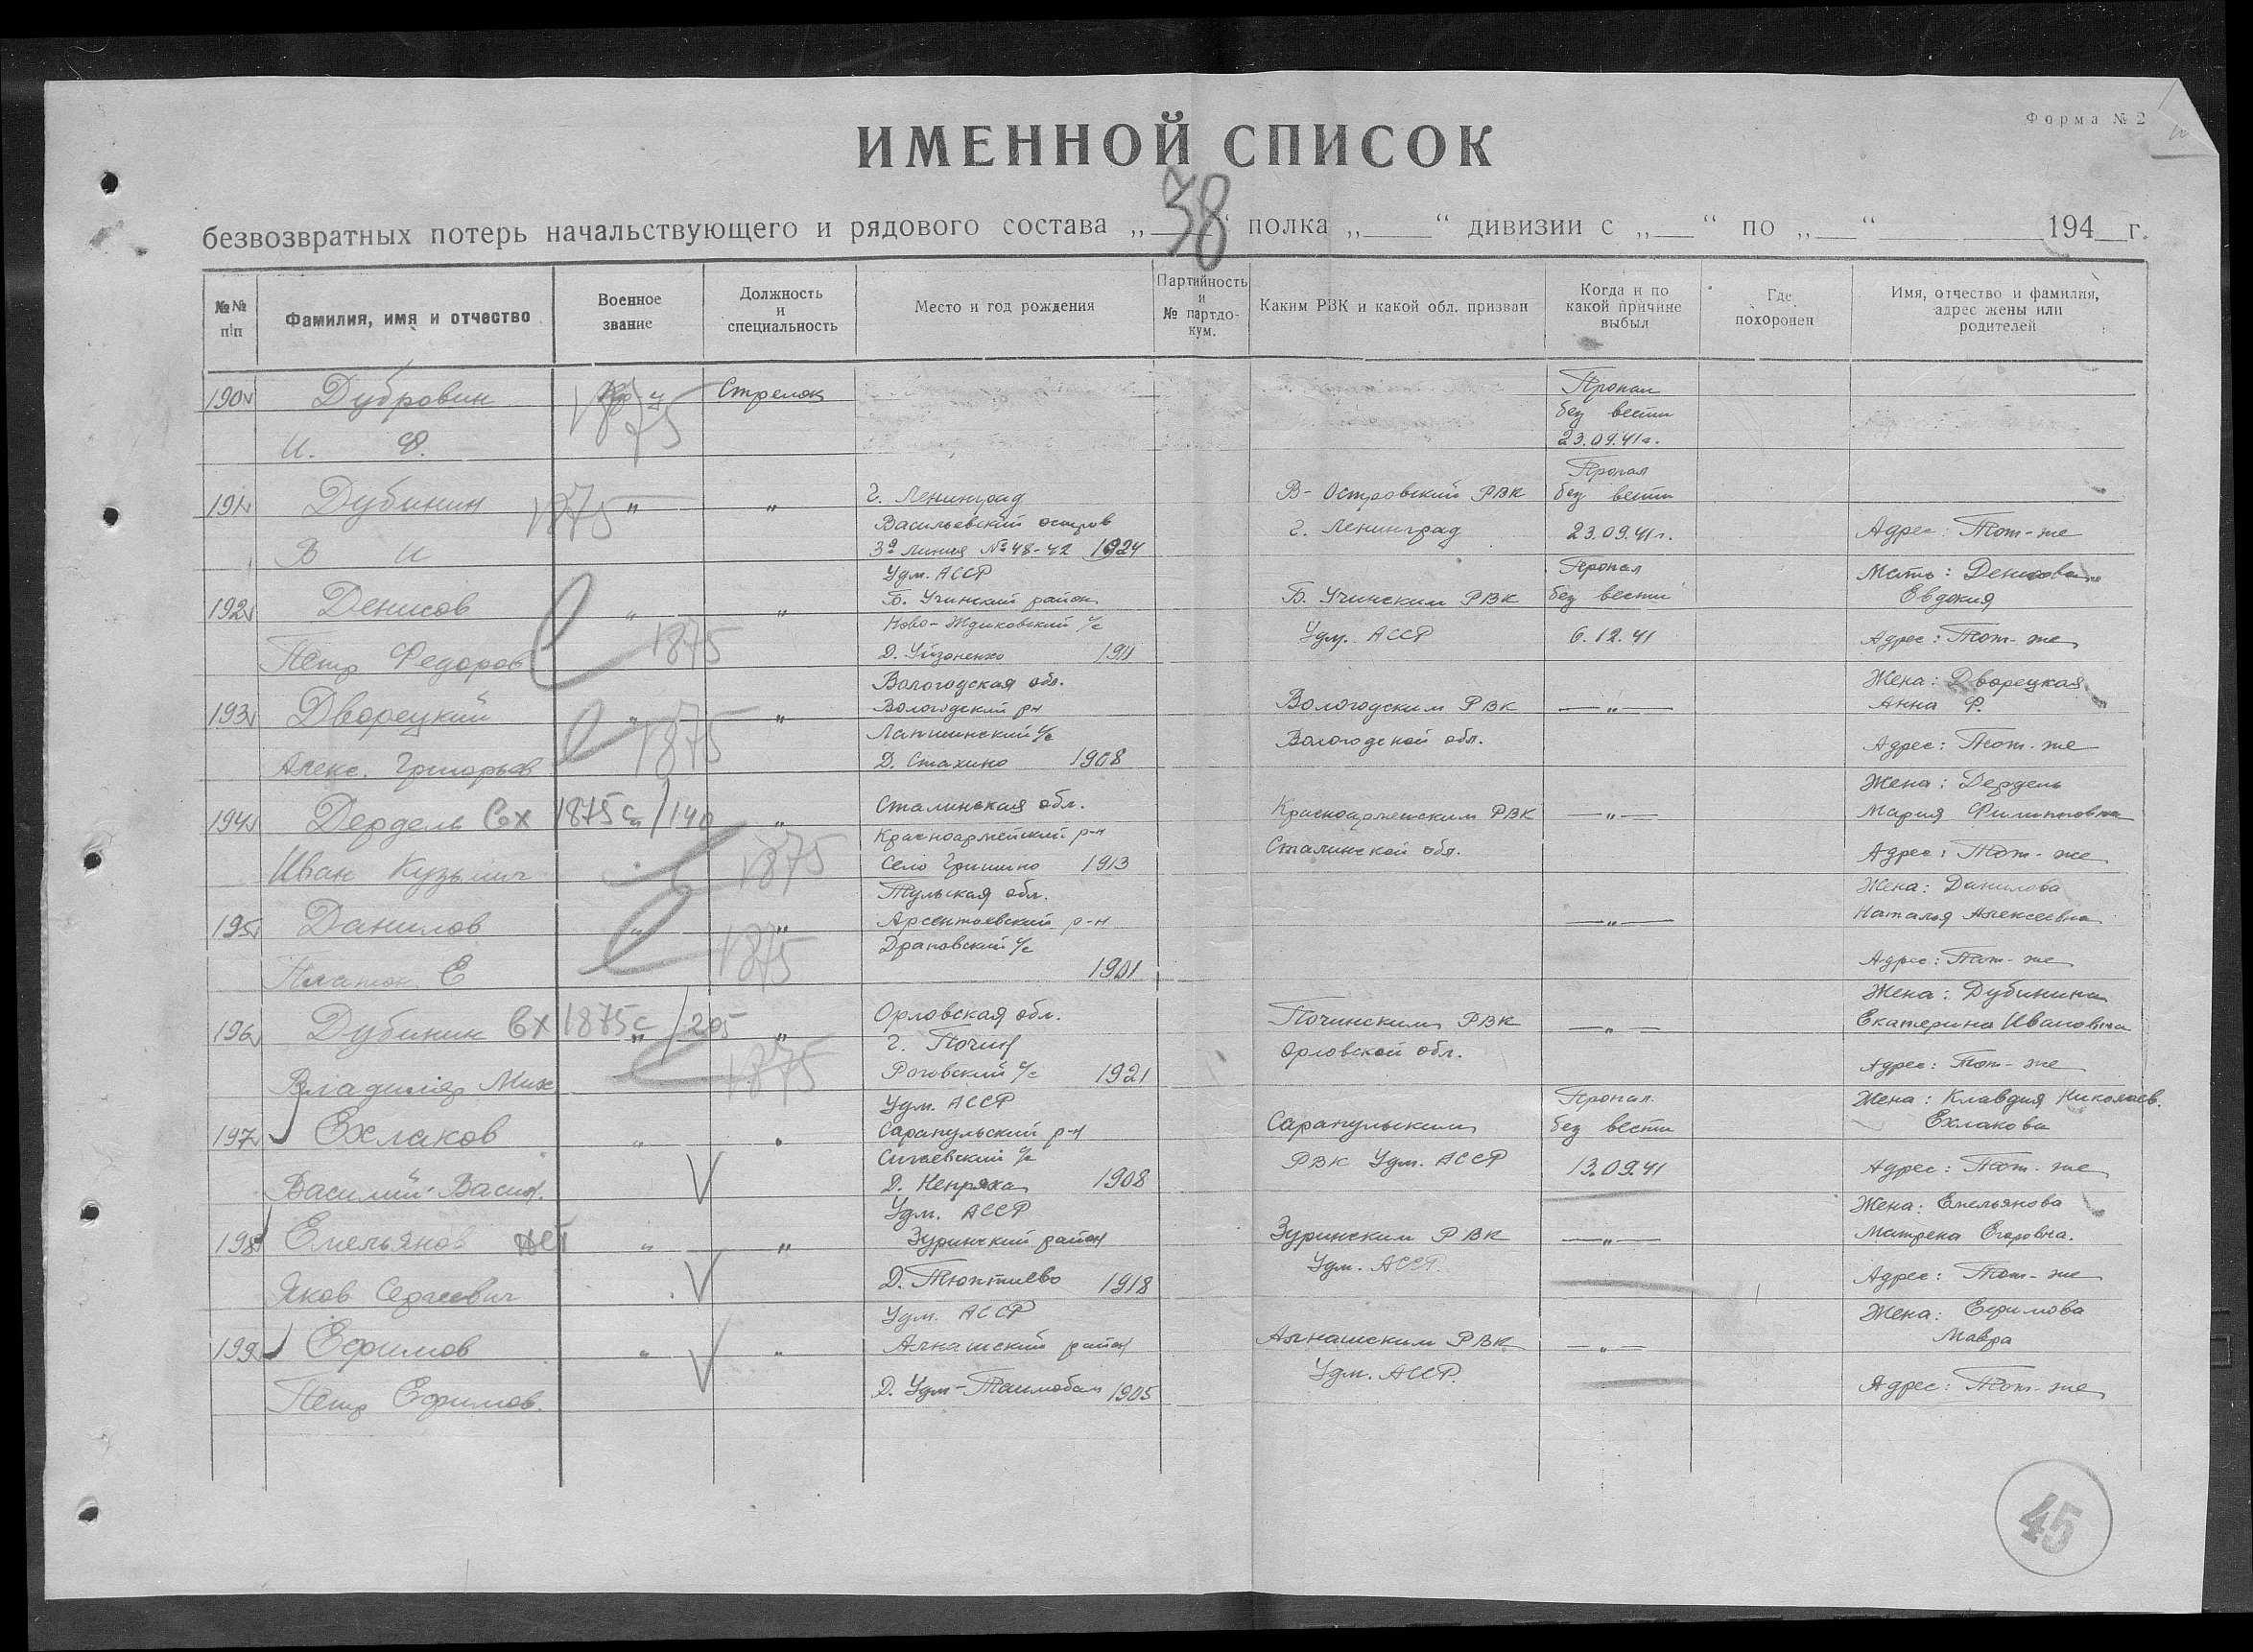 Форма № 2
ИМЕННОЙ СПИСОК
38
безвозвратных потерь начальствующего и рядового состава „ “ полка „ “ дивизии с „ “ по „ “ 194 г.
№№ п|п
Фамилия, имя и отчество
Военное звание
Должность и специальность
Место и год рождения
Партийность и № партдо-кум.
Каким РВК и какой обл. призван
Когда и по какой причине выбыл
Где похоронен
Имя, отчество и фамилия, адрес жены или родителей
190 Дубровин Кр-ц Стрелок Пропал
1875 без вести
И. Ф. 23.09.41г.
Пропал
191 Дубинин 1875 " " г. Ленинград В-Островский РВК без вести
Васильевский остров г. Ленинград 23.09.41г. Адрес: Тот-же
В И 3я линия № 48-42 1924
Удм. АССР Пропал Мать: Денисова
192 Денисов " " Б. Учинский район Б. Учинским РВК без вести Евдокия
1875 с/с Удм. АССР 6.12.41 Адрес: Тот-же
Петр Федоров Д. 1911
Вологодская обл. Жена: Дворецкая
193 Дворецкий " 1875 " Вологодский р-н Вологодским РВК —"— Анна Ф.
с/с Вологодской обл. Адрес: Тот-же
Алекс. Григорьев Д. Стахино 1908
Жена: Дердель
194 Дердель Вх 1875с/140 " Сталинская обл. Красноармейским РВК —"— Мария Филипповна
1875 Красноармейский р-н Сталинской обл. Адрес: Тот-же
Иван Кузьмич Село Гришино 1913
Тульская обл. Жена: Данилова
195 Данилов " " Арсентьевский р-н —"— Наталья Алексеевна
1875 с/с Адрес: Тот-же
Платон Е 1901
Жена: Дубинина
196 Дубинин Вх 1875с/205 " Орловская обл. Починским РВК —"— Екатерина Ивановна
1875 г. Почин Орловской обл. Адрес: Тот-же
Владимир Мих Роговский с/с 1921
Удм. АССР Пропал Жена: Клавдия Николаев.
197 Ехлаков " " Сарапульский р-н Сарапульским без вести Ехлакова
с/с РВК Удм. АССР 13.09.41 Адрес: Тот-же
Василий Васил. Д. Непряха 1908
Удм. АССР Жена: Емельянова
198 Емельянов нет " " Зуринский район Зуринским РВК —"— Матрена Егоровна.
Яков Сергеевич Д. 1918 Удм. АССР Адрес: Тот-же
Удм. АССР Жена: Ефимова
199 Ефимов " " Алнашский район Алнашским РВК —"— Мавра
Петр Ефимов. Д. Удм- 1905 Удм. АССР. Адрес: Тот-же
45